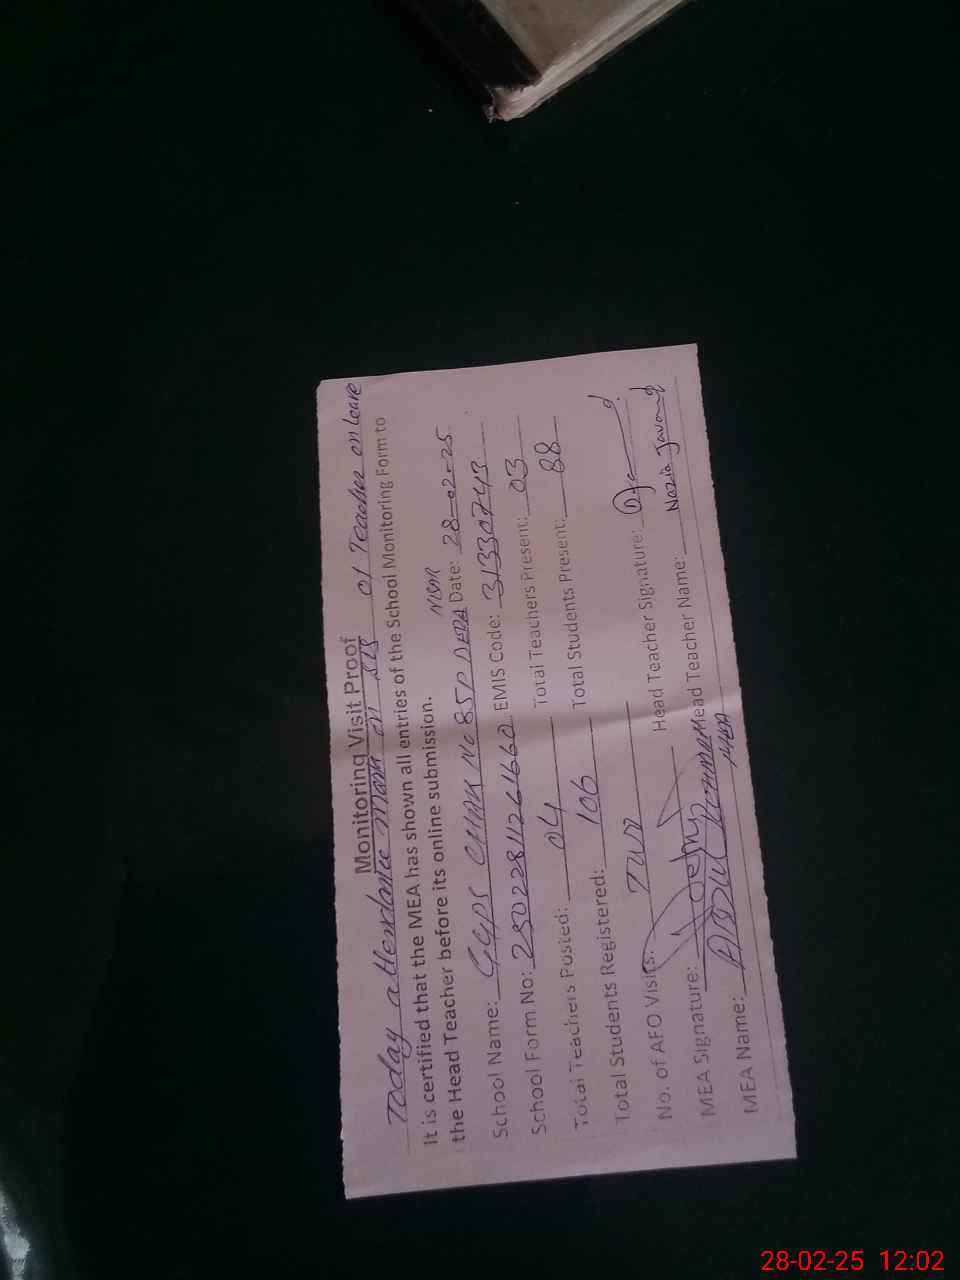 Monitoring Visit Proof
Today attendance mark on SIS 01 Teacher on leave
It is certified that the MEA has shown all entries of the School Monitoring Form to
the Head Teacher before its online submission.
School Name: GGPS CHAK No 85P DERA NISAR Date: 28-02-25
School Form No: EMIS Code: 31330743
Total Teachers Posted: 04 Total Teachers Present: 03
Total Students Registered: 106 Total Students Present: 88
No. of AFO Visits:
MEA Signature: Head Teacher Signature:
MEA Name: ABDUL Head Teacher Name: Nazia Javed
MEA
28-02-25 12:02